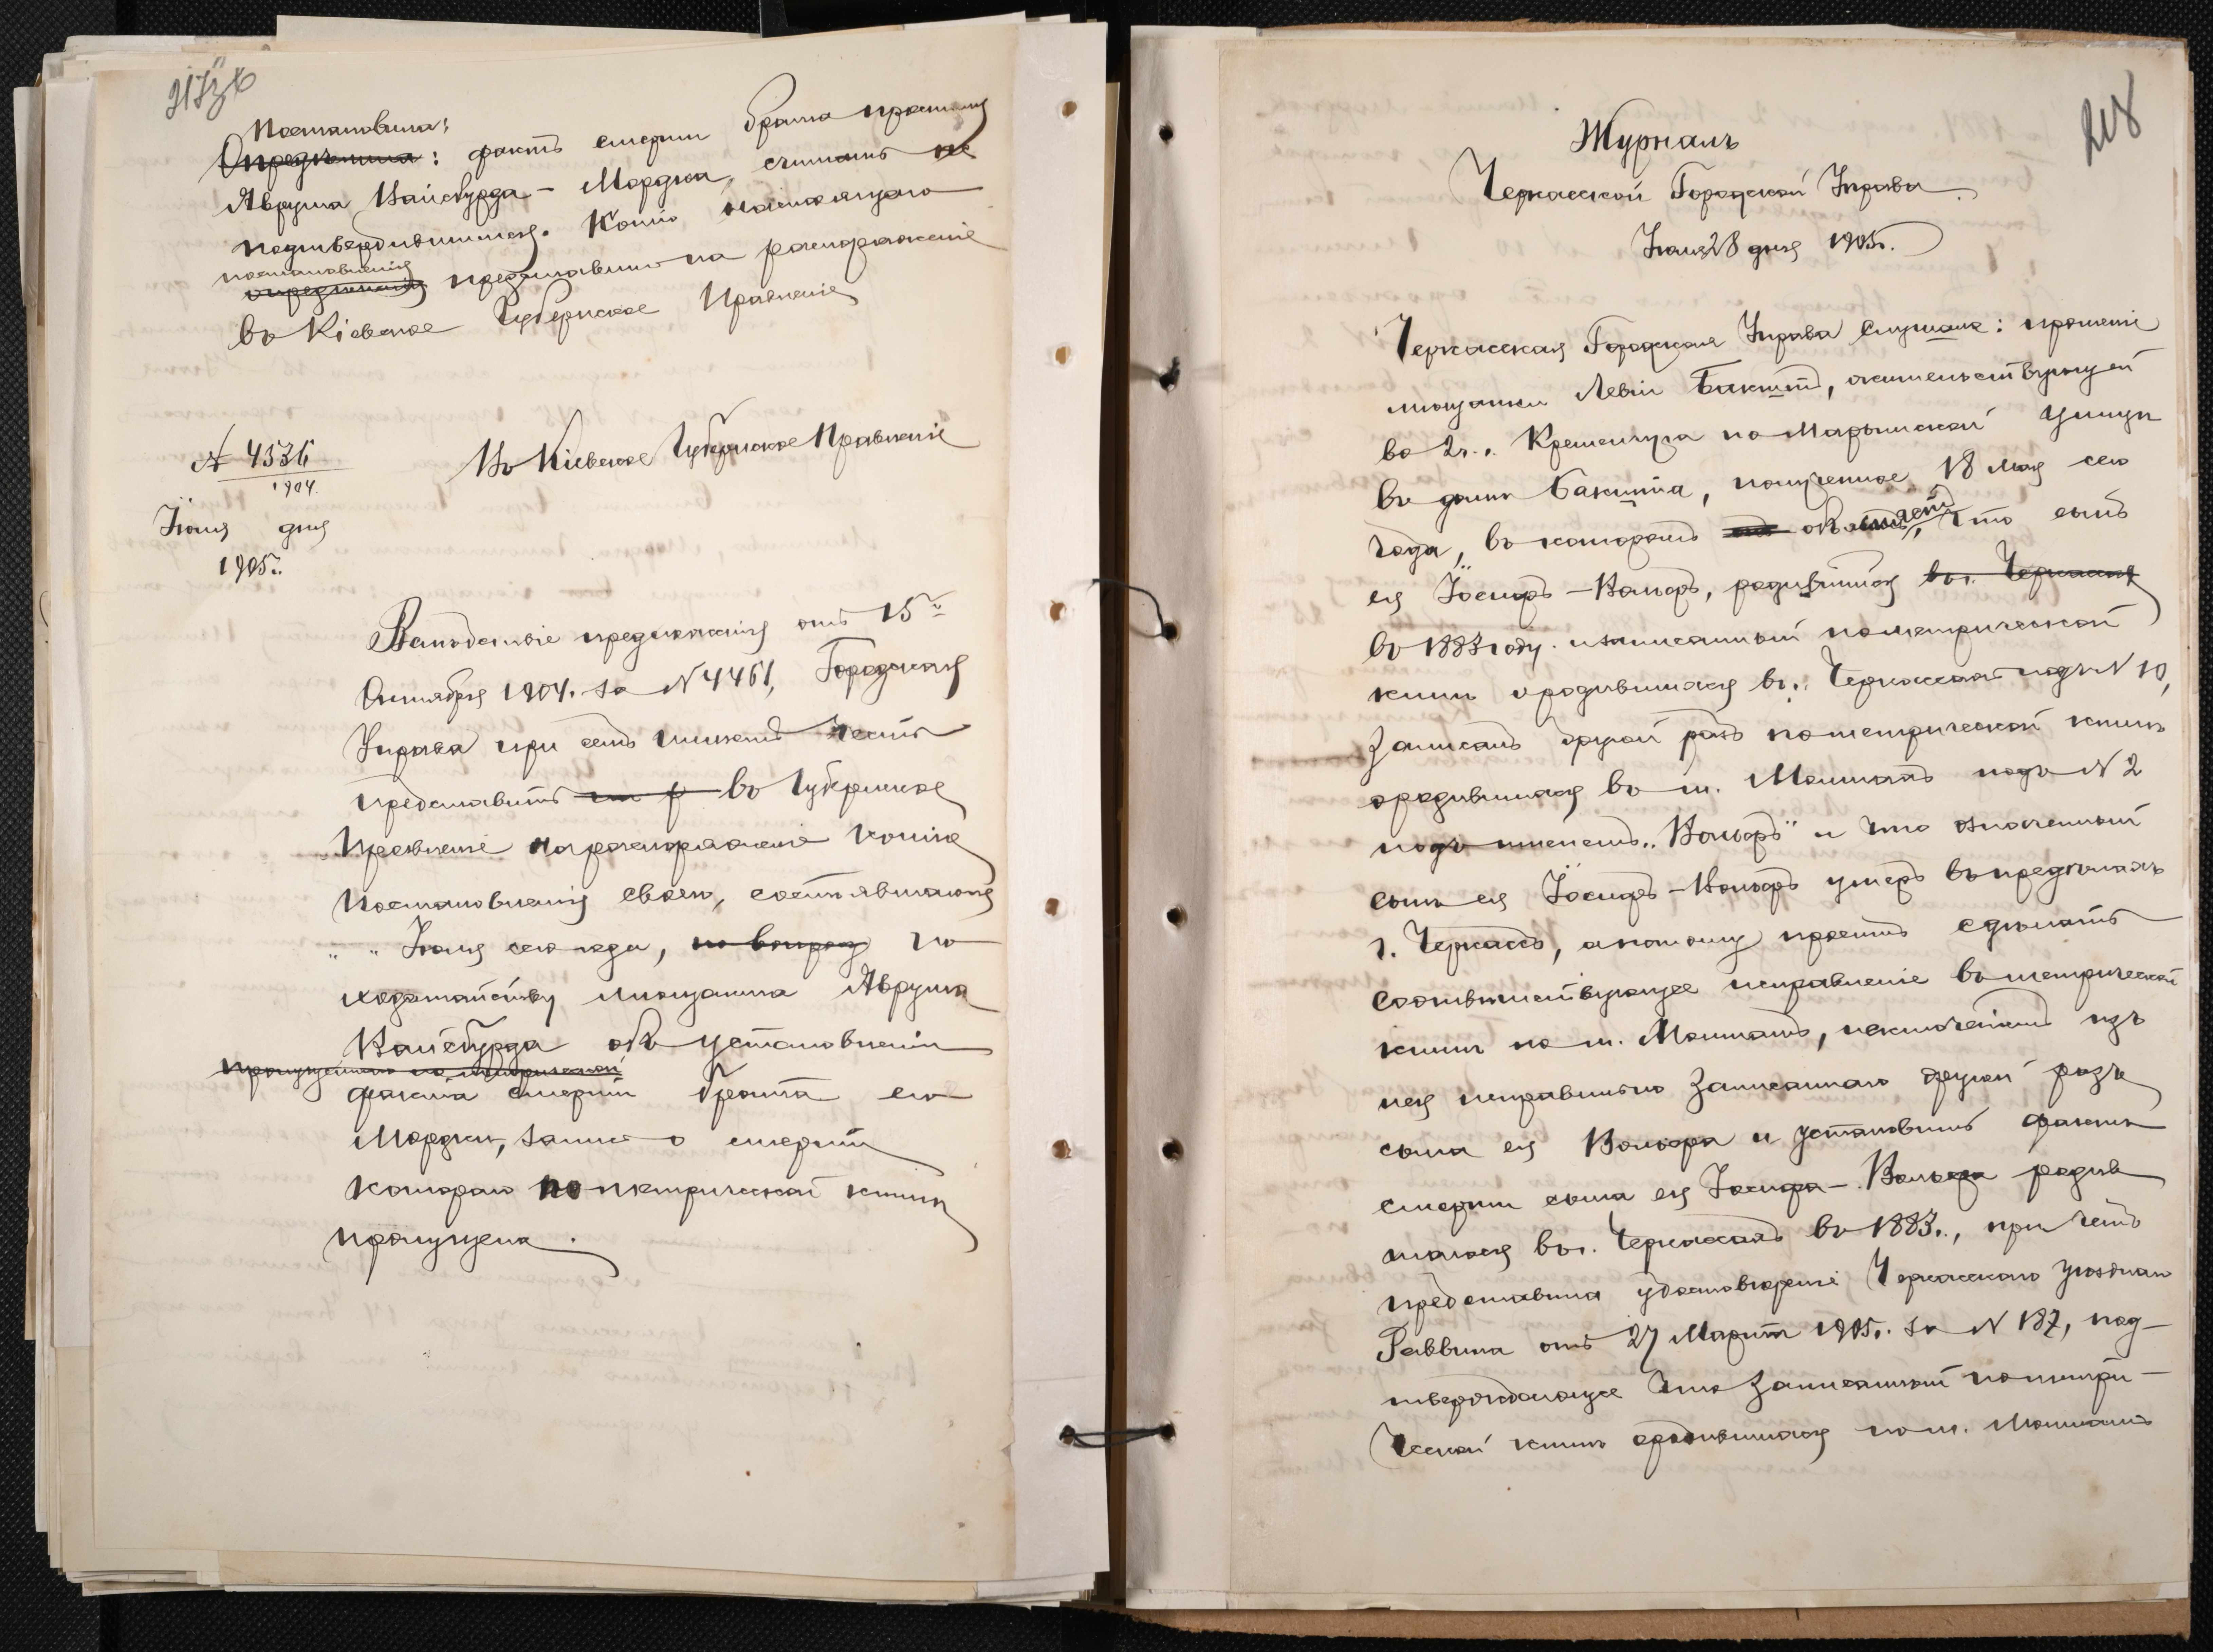 Постановила:
Определила: фактъ смерти брата просителя
Аврума Вайсбурда - Мордка, считать не
подтвердившимся. Копію настоящаго
постановленія
опредѣленія представить на распоряженіе
въ Кіевское Губернское Правленіе
№ 4536
1904.
Въ Кіевское Губернское Правленіе
Іюля дня
1905 г.
Вслѣдствіе предложенія отъ 15 г.
Октября 1904 г. за № 4461, Городская
Управа при семъ имѣетъ честь
представить въ Губернское
Правленіе на распоряженіе копію
постановленія своего, состоявшагося
" " Іюля сего года, по вопросу по
ходатайству мѣщанина Аврума
Вайсбурда объ установленіи
пропущенной по метрической
факта смерти брата его
Мордки, запись о смерти
котораго по метрической книгѣ
пропущена.
218
Журналъ
Черкасской Городской Управы
Іюля 28 дня 1905 г.
Черкасская Городская Управа слушала: прошеніе
мѣщанки Левіи Бакштъ, жительствующей
въ г. Кременчугѣ по Марьинской улицѣ
въ домѣ Бакшта, полученное 18 Мая сего
года, въ которомъ объясняетъ, что сынъ
ея Іосифъ-Вольфъ, родившійся въ г. Черкассахъ
въ 1883 году и записанный по метрической
книгѣ о родившихся въ г. Черкассахъ подъ № 10,
записанъ другой разъ по метрической книгѣ
о родившихся въ м. Мошнахъ подъ № 2
подъ именемъ "Вольфъ" и что означенный
сынъ ея Іосифъ-Вольфъ умеръ въ предѣлахъ
г. Черкассъ, а потому проситъ сдѣлать
соотвѣтствующее исправленіе въ метрической
книгѣ по м. Мошнамъ, исключеніемъ изъ
нея неправильно записаннаго другой разъ
сына ея Вольфа и установить фактъ
смерти сына ея Іосифа-Вольфа родив
шагося въ г. Черкассахъ въ 1883 г., при чемъ
представила удостовѣреніе Черкасскаго уѣзднаго
Раввина отъ 27 Марта 1905 г. за № 187, под-
тверждающее что записанный по метри-
ческой книгѣ о родившихся по м. Мошнамъ